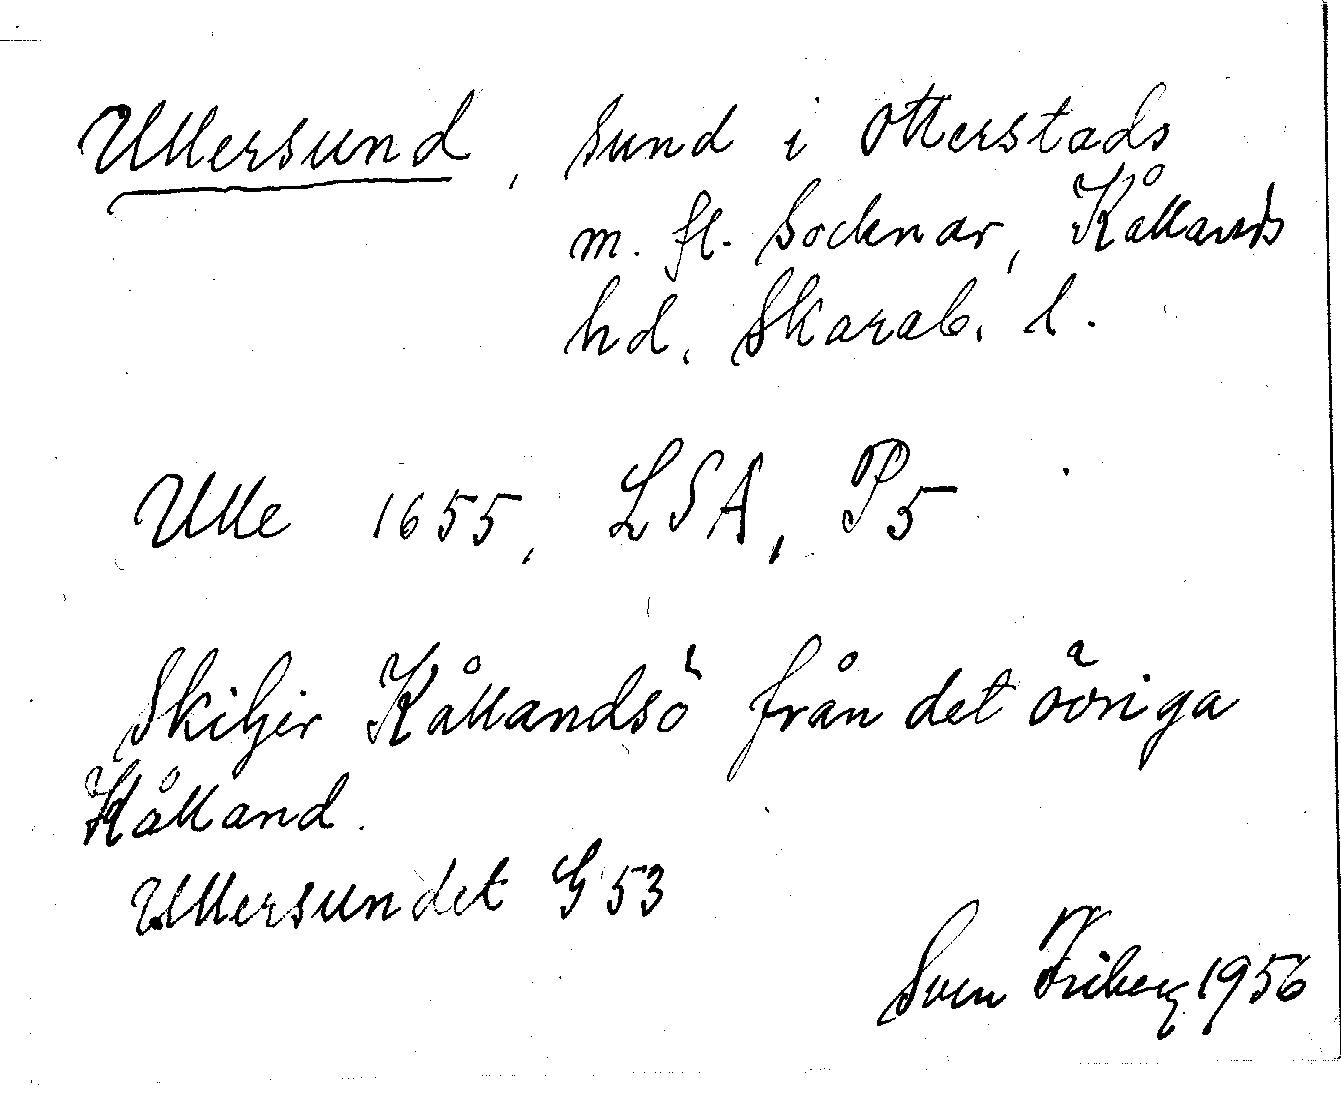 Ullersund, sund i Otterstads
m. fl. socknar, Kållands
hd. Skarab. l.
Ulle 1655, LSA, P5
Skiljer Kållandsö från det övriga
Kålland.
Ullersundet G 53
Sven Friberg 1956